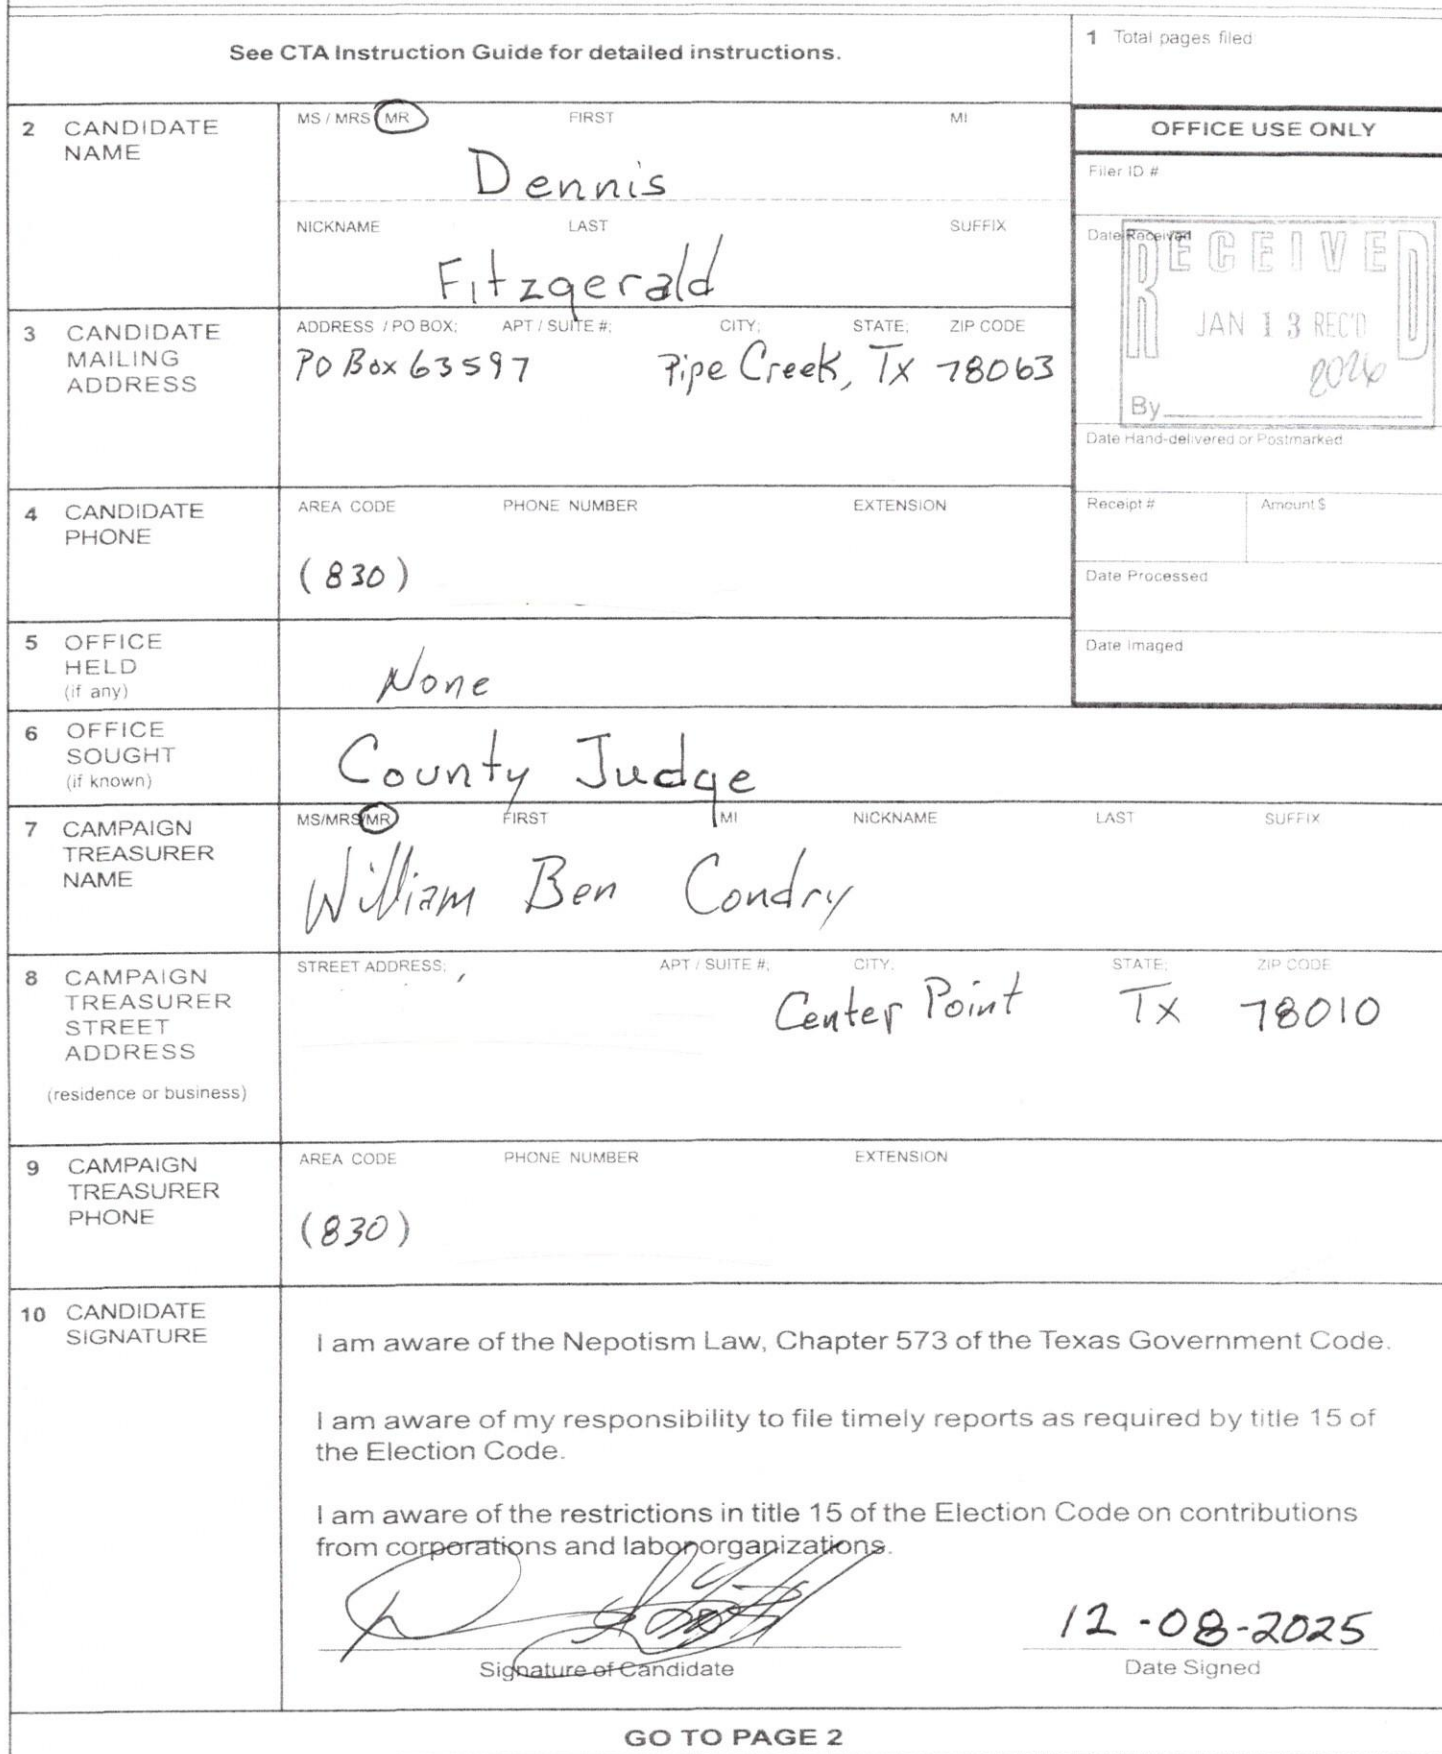 See CTA Instruction Guide for detailed instructions.
1 Total pages filed
2 CANDIDATE NAME
MS / MRS MR FIRST MI
Dennis
NICKNAME LAST SUFFIX
Fitzgerald
OFFICE USE ONLY
Filer ID #
Date Received
RECEIVED
JAN 13 REC'D
2026
By
Date Hand-delivered or Postmarked
Receipt # Amount $
Date Processed
Date Imaged
3 CANDIDATE MAILING ADDRESS
ADDRESS / PO BOX; APT / SUITE #; CITY; STATE; ZIP CODE
PO Box 63597 Pipe Creek, Tx 78063
4 CANDIDATE PHONE
AREA CODE PHONE NUMBER EXTENSION
(830)
5 OFFICE HELD (if any)
None
6 OFFICE SOUGHT (if known)
County Judge
7 CAMPAIGN TREASURER NAME
MS/MRS/MR FIRST MI NICKNAME LAST SUFFIX
William Ben Condry
8 CAMPAIGN TREASURER STREET ADDRESS
(residence or business)
STREET ADDRESS; APT / SUITE #; CITY; STATE; ZIP CODE
Center Point Tx 78010
9 CAMPAIGN TREASURER PHONE
AREA CODE PHONE NUMBER EXTENSION
(830)
10 CANDIDATE SIGNATURE
I am aware of the Nepotism Law, Chapter 573 of the Texas Government Code.
I am aware of my responsibility to file timely reports as required by title 15 of
the Election Code.
I am aware of the restrictions in title 15 of the Election Code on contributions
from corporations and labor organizations.
12-08-2025
Signature of Candidate Date Signed
GO TO PAGE 2